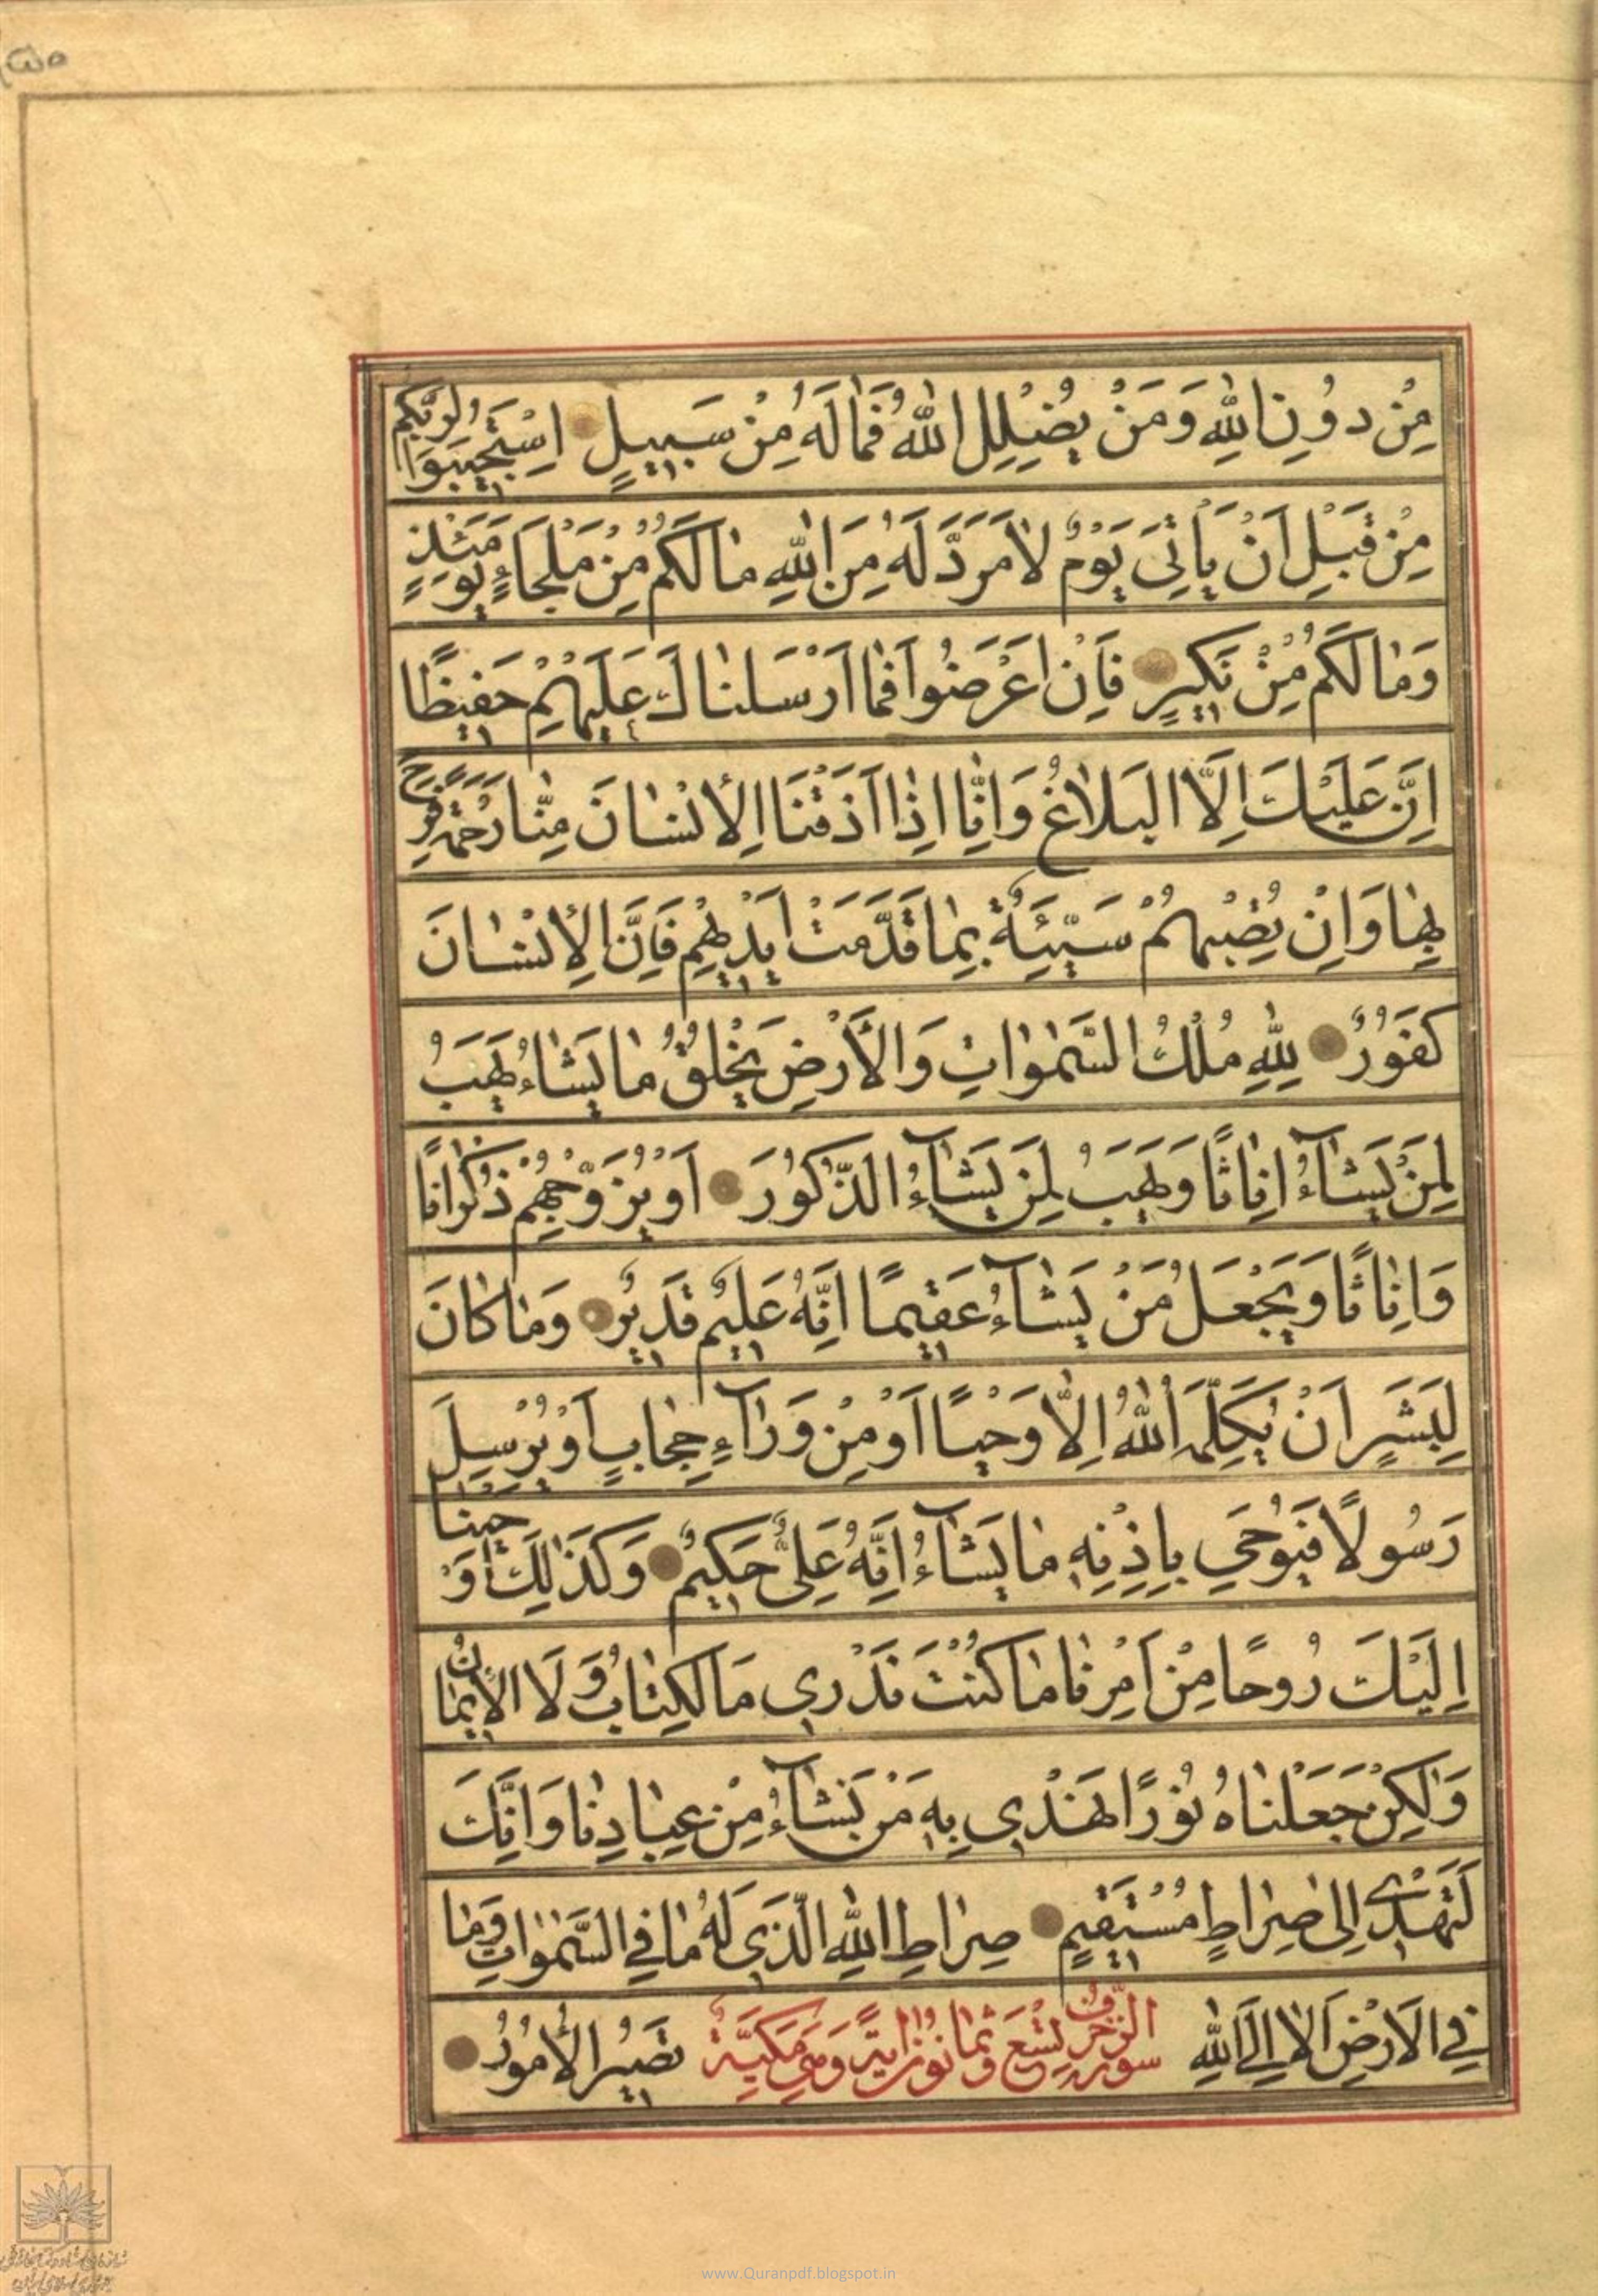 مِنْ دُونِ اللهِ وَمَنْ يُضْلِلِ اللهُ فَمٰا لَهُ مِنْ سَبِيلٍ اِسْتَجِيبُوا لِرَبِّكُمْ
مِنْ قَبْلِ اَنْ يَأْتِيَ يَوْمٌ لٰا مَرَدَّ لَهُ مِنَ اللهِ مٰا لَكُمْ مِنْ مَلْجَاءٍ يَوْمَئِذٍ
وَمٰا لَكُمْ مِنْ نَكِيرٍ فَاِنْ اَعْرَضُوا فَمٰا اَرْسَلْنٰاكَ عَلَيْهِمْ حَفِيظًا
اِنْ عَلَيْكَ اِلَّا الْبَلٰاغُ وَاِنّٰا اِذٰا اَذَقْنَا الْاِنْسٰانَ مِنّٰا رَحْمَةً فَرِحَ
بِهٰا وَاِنْ تُصِبْهُمْ سَيِّئَةٌ بِمٰا قَدَّمَتْ اَيْدِيهِمْ فَاِنَّ الْاِنْسٰانَ
كَفُورٌ لِلّٰهِ مُلْكُ السَّمٰوٰاتِ وَالْاَرْضِ يَخْلُقُ مٰا يَشٰاءُ يَهَبُ
لِمَنْ يَشٰاءُ اِنٰاثًا وَيَهَبُ لِمَنْ يَشٰاءُ الذُّكُورَ اَوْ يُزَوِّجُهُمْ ذُكْرٰانًا
وَاِنٰاثًا وَيَجْعَلُ مَنْ يَشٰاءُ عَقِيمًا اِنَّهُ عَلِيمٌ قَدِيرٌ وَمٰا كٰانَ
لِبَشَرٍ اَنْ يُكَلِّمَهُ اللهُ اِلّٰا وَحْيًا اَوْ مِنْ وَرٰاءِ حِجٰابٍ اَوْ يُرْسِلَ
رَسُولًا فَيُوحِيَ بِاِذْنِهِ مٰا يَشٰاءُ اِنَّهُ عَلِيٌّ حَكِيمٌ وَكَذٰلِكَ اَوْحَيْنٰا
اِلَيْكَ رُوحًا مِنْ اَمْرِنٰا مٰا كُنْتَ تَدْرِي مَا الْكِتٰابُ وَلَا الْاِيمٰانُ
وَلٰكِنْ جَعَلْنٰاهُ نُورًا نَهْدِي بِهِ مَنْ نَشٰاءُ مِنْ عِبٰادِنٰا وَاِنَّكَ
لَتَهْدِي اِلىٰ صِرٰاطٍ مُسْتَقِيمٍ صِرٰاطِ اللهِ الَّذِي لَهُ مٰا فِي السَّمٰوٰاتِ وَمٰا
فِي الْاَرْضِ اَلٰا اِلَى اللهِ سورة الزخرف تسع وثمانون اية وهي مكيّة تَصِيرُ الْاُمُورُ
www.Quranpdf.blogspot.in